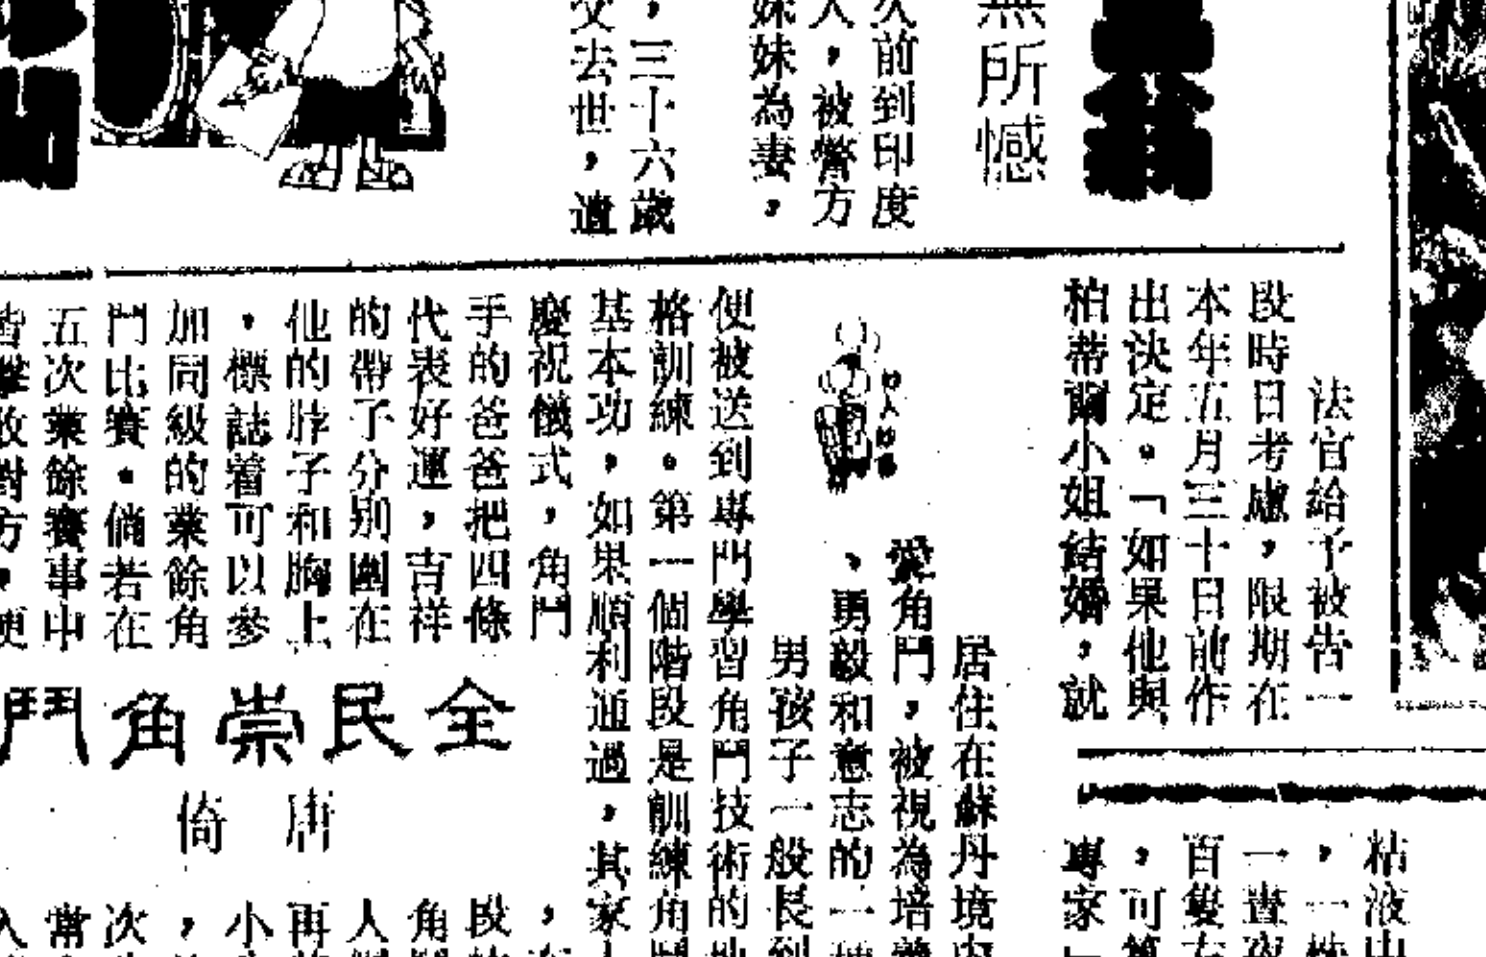 無所憾
久前到印度
人，被警方
妹妹為妻，
，三十六歲
父去世，遺
法官給予被告一
段時日考慮，限期在
本年五月三十日前作
出決定。「如果他與
柏蒂爾小姐結婚，就
粘液
，一
一晝夜
百隻
，可
專家
居住在蘇丹境內
愛角鬥，被視為培養
，勇毅和意志的一種
男孩子一般長到
便被送到專門學習角鬥技術的
格訓練。第一個階段是訓練角鬥
基本功，如果順利通過，其家
慶祝儀式，角鬥
手的爸爸把四條
代表好運，吉祥
的帶子分別圍在
他的脖子和胸上
，標誌着可以參
加同級的業餘角
鬥比賽。倘若在
五次業餘賽事中
皆擊敗對方，便
全民崇角鬥
唐倚
，
段
角
人
再
小
，
次
常
入